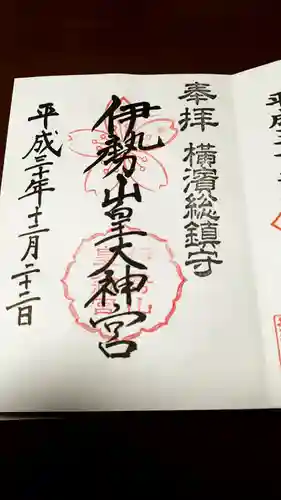 奉拝
横濱総鎮守
伊勢山皇大神宮
平成三十年十二月二十二日